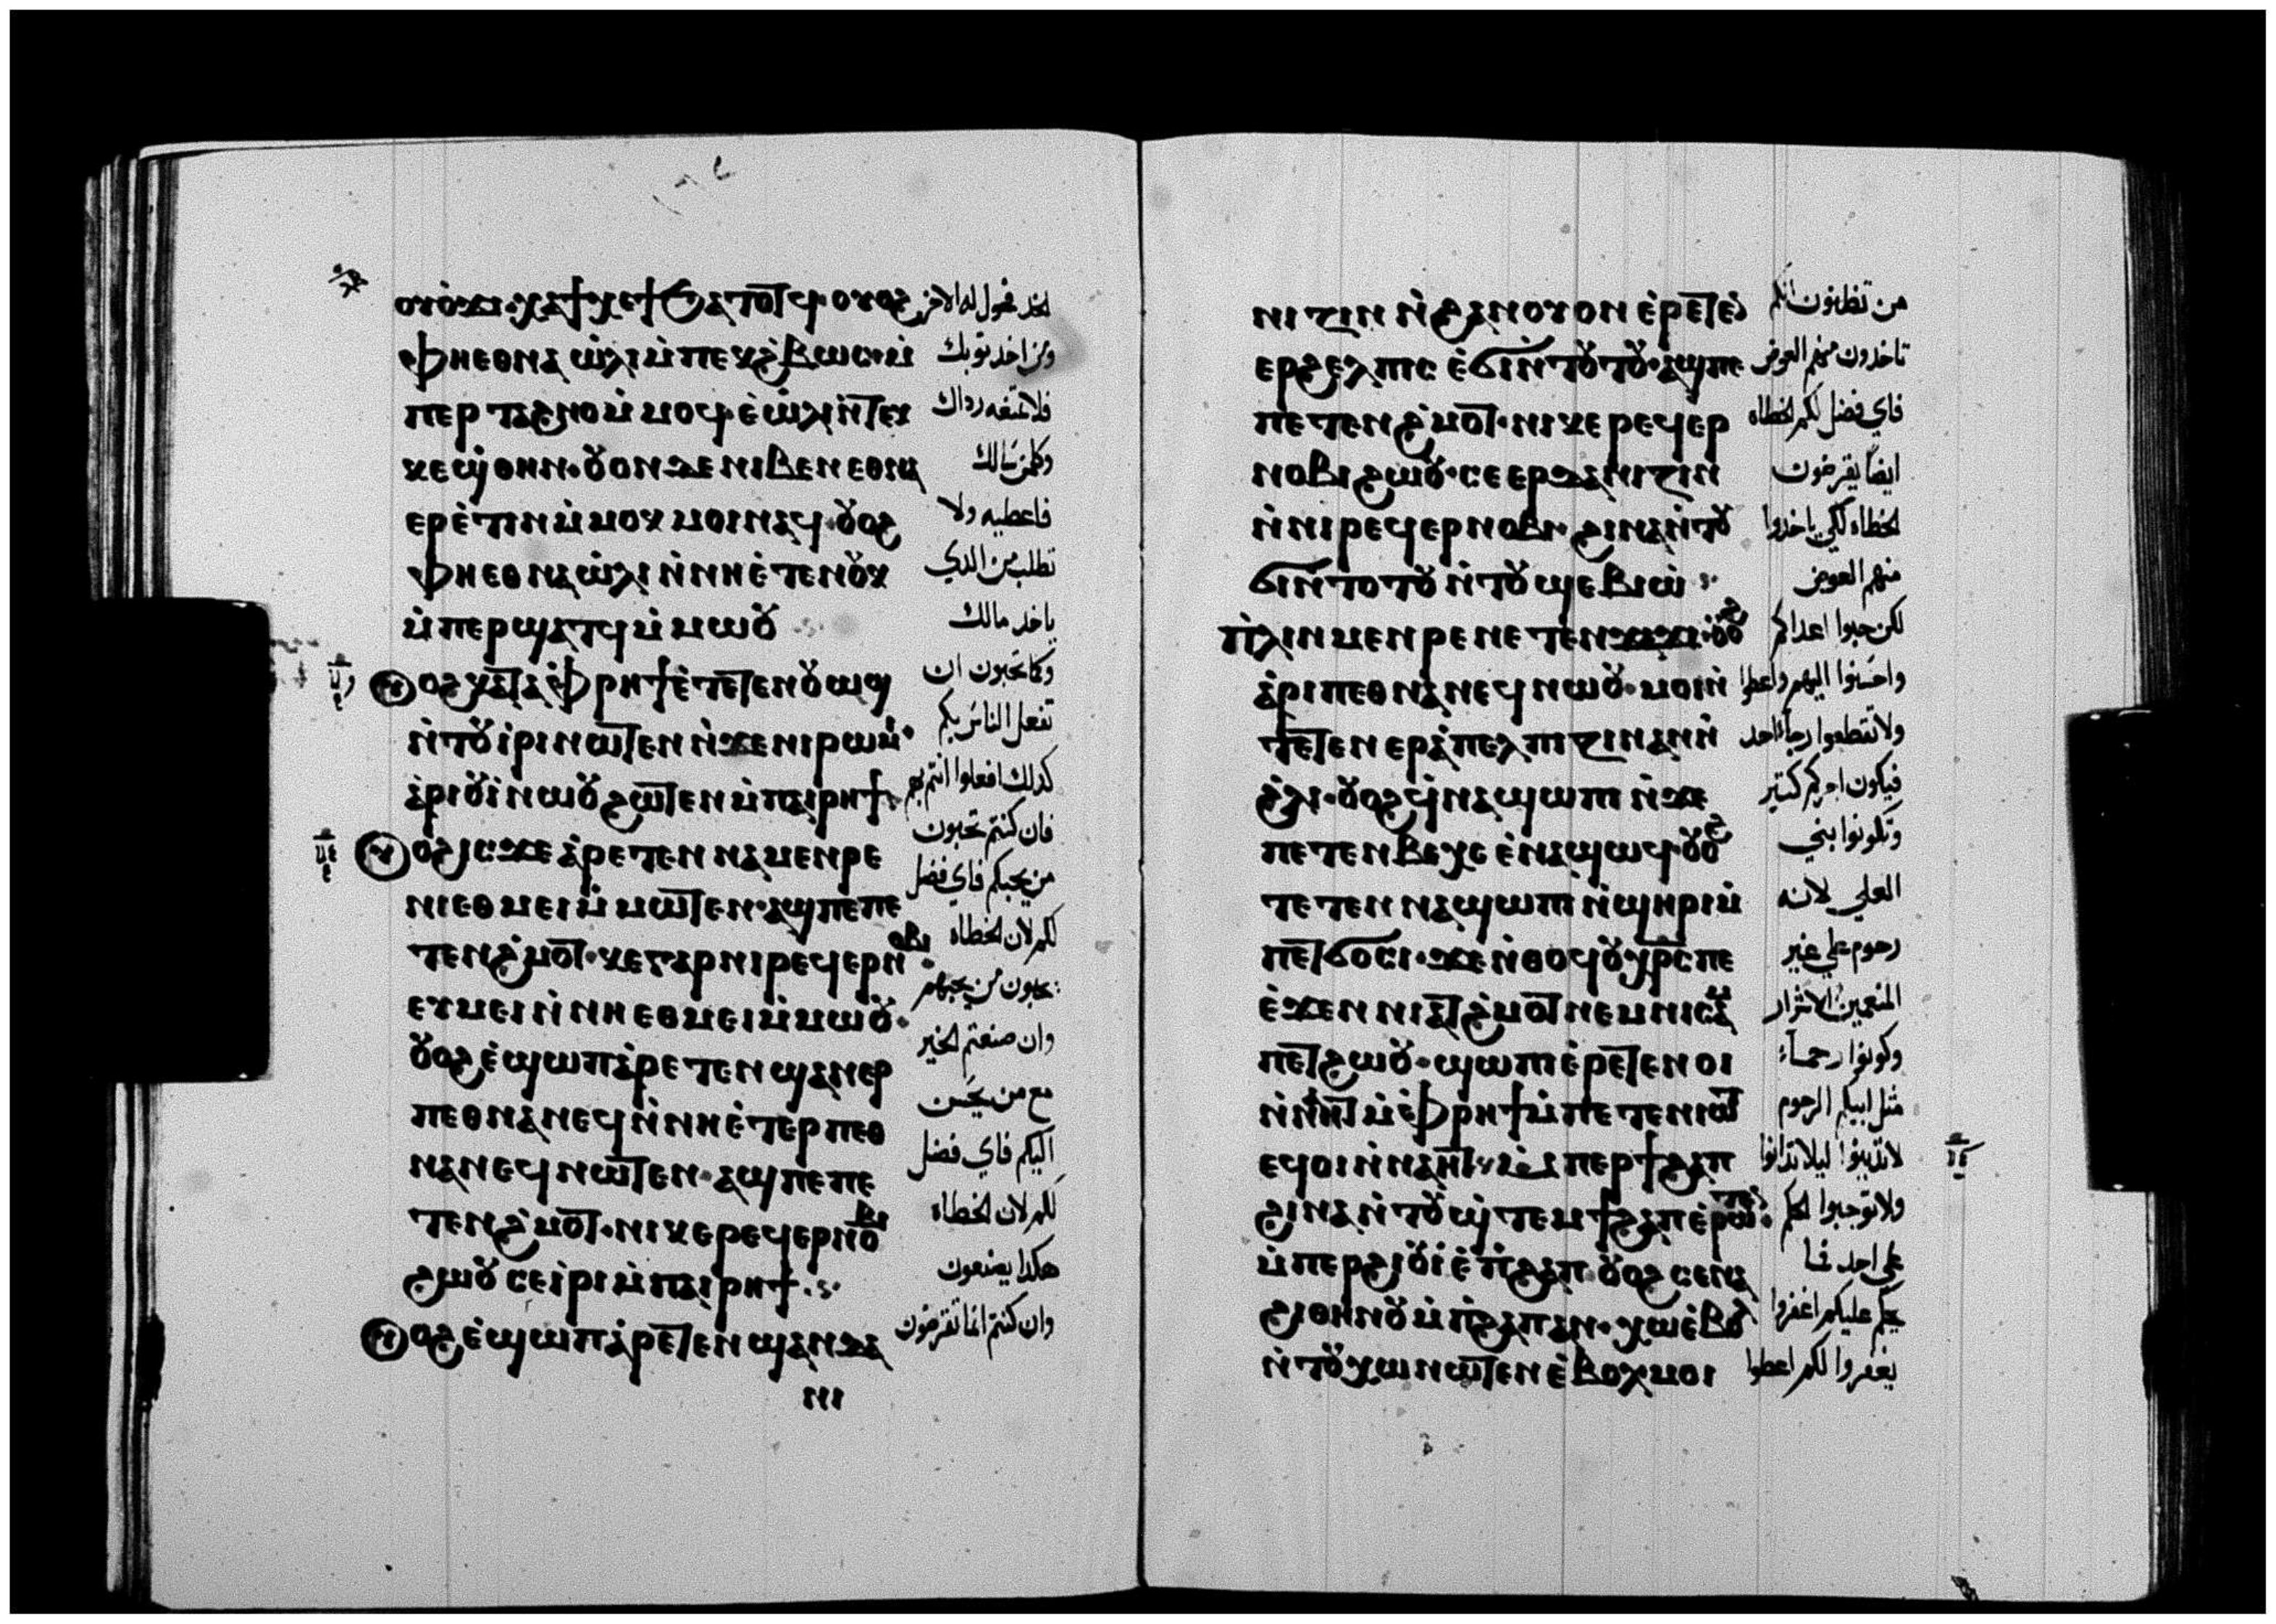 ⲟⲩⲟϫⲓ·ⲭⲁϯⲭⲉϯϧⲁⲧⲟⲧϥ·ⲟⲩⲟϩ
ⲫⲏⲉⲑⲛⲁⲱ̀ⲗⲓⲙ̀ⲡⲉⲕϩ̀ⲃⲱⲥ·ⲙ̀
ⲡⲉⲣⲧⲁϩⲛⲟⲙ̀ⲙⲟϥ·ⲉ̀ⲱ̀ⲗⲓⲛ̀ⲧⲉⲕ
ⲕⲉϣ̀ⲑⲏⲛ·ⲟⲩⲟⲛⲇⲉⲛⲓⲃⲉⲛⲉⲑⲛⲁ
ⲉⲣⲉ̀ⲧⲓⲛⲙ̀ⲙⲟⲕⲙⲟⲓⲛⲁϥ·ⲟⲩⲟϩ
ⲫⲏⲉⲑⲛⲁⲱ̀ⲗⲓⲛ̀ⲛⲏⲉ̀ⲧⲉⲛⲟⲩⲕ
ⲙ̀ⲡⲉⲣϣⲁⲧϥⲙ̀ⲙⲱⲟⲩ
ⲟϩⲕⲁⲧⲁⲫ̀ⲣⲏϯⲉ̀ⲧⲉⲧⲉⲛⲟⲩⲱϣ
ⲛ̀ⲧⲟⲩⲓ̀ⲣⲓⲛⲱⲧⲉⲛⲛ̀ϫⲉⲛⲓⲣⲱⲙⲓ
ⲁ̀ⲣⲓⲟⲩⲓ̀ⲛⲱⲟⲩϩⲱⲧⲉⲛⲙ̀ⲡⲁⲓⲣⲏϯ
ⲟϩⲓⲥϫⲉⲁ̀ⲣⲉⲧⲉⲛⲛⲁⲙⲉⲛⲣⲉ
ⲛⲓⲉⲑⲙⲉⲓⲙ̀ⲙⲱⲧⲉⲛ·ⲁϣⲡⲉⲡⲉ
ⲧⲉⲛϩ̀ⲙⲟⲧ·ⲕⲉⲅⲁⲣⲛⲓⲣⲉϥⲉⲣⲛⲟⲃⲓ
ⲉⲩⲙⲉⲓⲛ̀ⲛⲏⲉⲑⲙⲉⲓⲙ̀ⲙⲱⲟⲩ·
ⲟⲩⲟϩⲉ̀ϣⲱⲡⲁ̀ⲣⲉⲧⲉⲛϣⲁⲛⲉⲣ
ⲡⲉⲑⲛⲁⲛⲉϥⲛ̀ⲛⲏⲉ̀ⲧⲉⲣⲡⲉⲑ
ⲛⲁⲛⲉϥⲛⲱⲧⲉⲛ·ⲁϣⲡⲉⲡⲉ
ⲧⲉⲛϩ̀ⲙⲟⲧ·ⲛⲓⲕⲉⲣⲉϥⲉⲣⲛⲟⲃⲓ
ϩⲱⲟⲩⲥⲉⲓ̀ⲣⲓⲙ̀ⲡⲁⲓⲣⲏϯ
ⲟϩⲉ̀ϣⲱⲡⲁ̀ⲣⲉⲧⲉⲛϣⲁⲛϫⲁ
ⲛⲓ
ومن اخد توبك
فلا تمنعه رداك
وكلمن سالك
فاعطيه ولا
تطلب من الدي
ياخد مالك
وكما تحبون ان
تفعل الناس بكم
كدلك افعلوا انتم بهم
فان كنتم تحبون
من يحبكم فاي فضل
لكم لان الخطاه
يحبون من يحبهم
وان صنعتم الخير
مع من يحسن
اليكم فاي فضل
لكم لان الخطاه
هكدا يصنعون
وان كنتم انما تقرضون
ⲛⲓⲧⲓⲛⲛ̀ϩⲁⲛⲟⲩⲟⲛⲉ̀ⲣⲉⲧⲉ
ⲉⲣϩⲉⲗⲡⲓⲥⲉ̀ϭⲓⲛ̀ⲧⲟⲩⲧⲟⲩ·ⲁϣⲡⲉ
ⲡⲉⲧⲉⲛϩ̀ⲙⲟⲧ·ⲛⲓⲕⲉⲣⲉϥⲉⲣ
ⲛⲟⲃⲓϩⲱⲟⲩ·ⲥⲉⲉⲣⲇⲁⲛⲓⲧⲓⲛ
ⲛ̀ⲛⲓⲣⲉϥⲉⲣⲛⲟⲃⲓ·ϩⲓⲛⲁⲛ̀ⲧⲟⲩ
ϭⲓⲛ̀ⲧⲟⲧⲟⲩⲛ̀ⲧⲟⲩϣⲉⲃⲓⲱ̀
ⲡ̀ⲗⲓⲛⲙⲉⲛⲣⲉⲛⲉⲧⲉⲛϫⲁϫⲓ·ⲟⲩⲟϩ
ⲁ̀ⲣⲓⲡⲉⲑⲛⲁⲛⲉϥⲛⲱⲟⲩ·ⲙⲟⲓⲛ̀
ⲧⲉⲧⲉⲛⲉⲣⲁ̀ⲡⲉⲗⲡⲓⲍⲓⲛⲁⲛⲛ̀
ϩ̀ⲗⲓ·ⲟⲩⲟϩϥ̀ⲛⲁϣⲱⲡⲓⲛ̀ϫⲉ
ⲡⲉⲧⲉⲛⲃⲉⲭⲉⲉ̀ⲛⲁϣⲱϥ·ⲟⲩⲟϩ
ⲧⲉⲧⲉⲛⲛⲁϣⲱⲡⲓⲛ̀ϣⲏⲣⲓⲙ̀
ⲡⲉⲧϭⲟⲥⲓ·ϫⲉⲛ̀ⲑⲟϥⲟⲩⲭⲣⲥⲡⲉ
ⲉ̀ϫⲉⲛⲛⲓⲁⲧϩ̀ⲙⲟⲧⲛⲉⲙⲛⲓⲥⲁⲙ
ⲡⲉⲧϩⲱⲟⲩ·ϣⲱⲡⲓⲉ̀ⲣⲉⲧⲉⲛⲟⲓ
ⲛ̀ⲛⲁⲏⲧⲙ̀ⲫ̀ⲣⲏϯⲙ̀ⲡⲉⲧⲉⲛⲓⲱⲧ
ⲉϥⲟⲓⲛ̀ⲛⲁⲏⲧ·ⲙ̀ⲡⲉⲣϯϩⲁⲡ
ϩⲓⲛⲁⲛ̀ⲧⲟⲩϣ̀ⲧⲉⲙϯϩⲁⲡⲉ̀ⲣⲱⲧⲉⲛ
ⲙ̀ⲡⲉⲣϩⲓⲟⲩⲓ̀ⲉ̀ⲡ̀ϩⲁⲡ·ⲟⲩⲟϩⲥⲉⲛⲁ
ϩⲓⲑⲏⲛⲟⲩⲙ̀ⲡ̀ϩⲁⲡⲁⲛ·ⲭⲱⲉ̀ⲃⲟⲗ
ⲛ̀ⲧⲟⲩⲭⲱⲛⲱⲧⲉⲛⲉ̀ⲃⲟⲗⲙⲟⲓ
من تظنون انكم
تاخدون منهم العوض
فاي فضل لكم الخطاه
ايضا يقرضون
الخطاه لكي ياخدوا
منهم العوض
لكن حبوا اعداكم
واحسنوا اليهم واعطوا
ولا تقطعوا رجا احد
فيكون اجركم كتير
وتكونوا بني
العلي لانه
رحوم علي غير
المنعمين الاشرار
وكونوا رحماء
مثل ابيكم الرحوم
لا تدينوا ليلا تدانوا
ولا توجبوا الحكم
علي احد فما
يحكم عليكم اغفروا
يغفروا لكم اعطوا